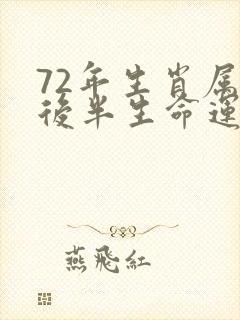 72年生肖属
後半生命運
燕飛紅